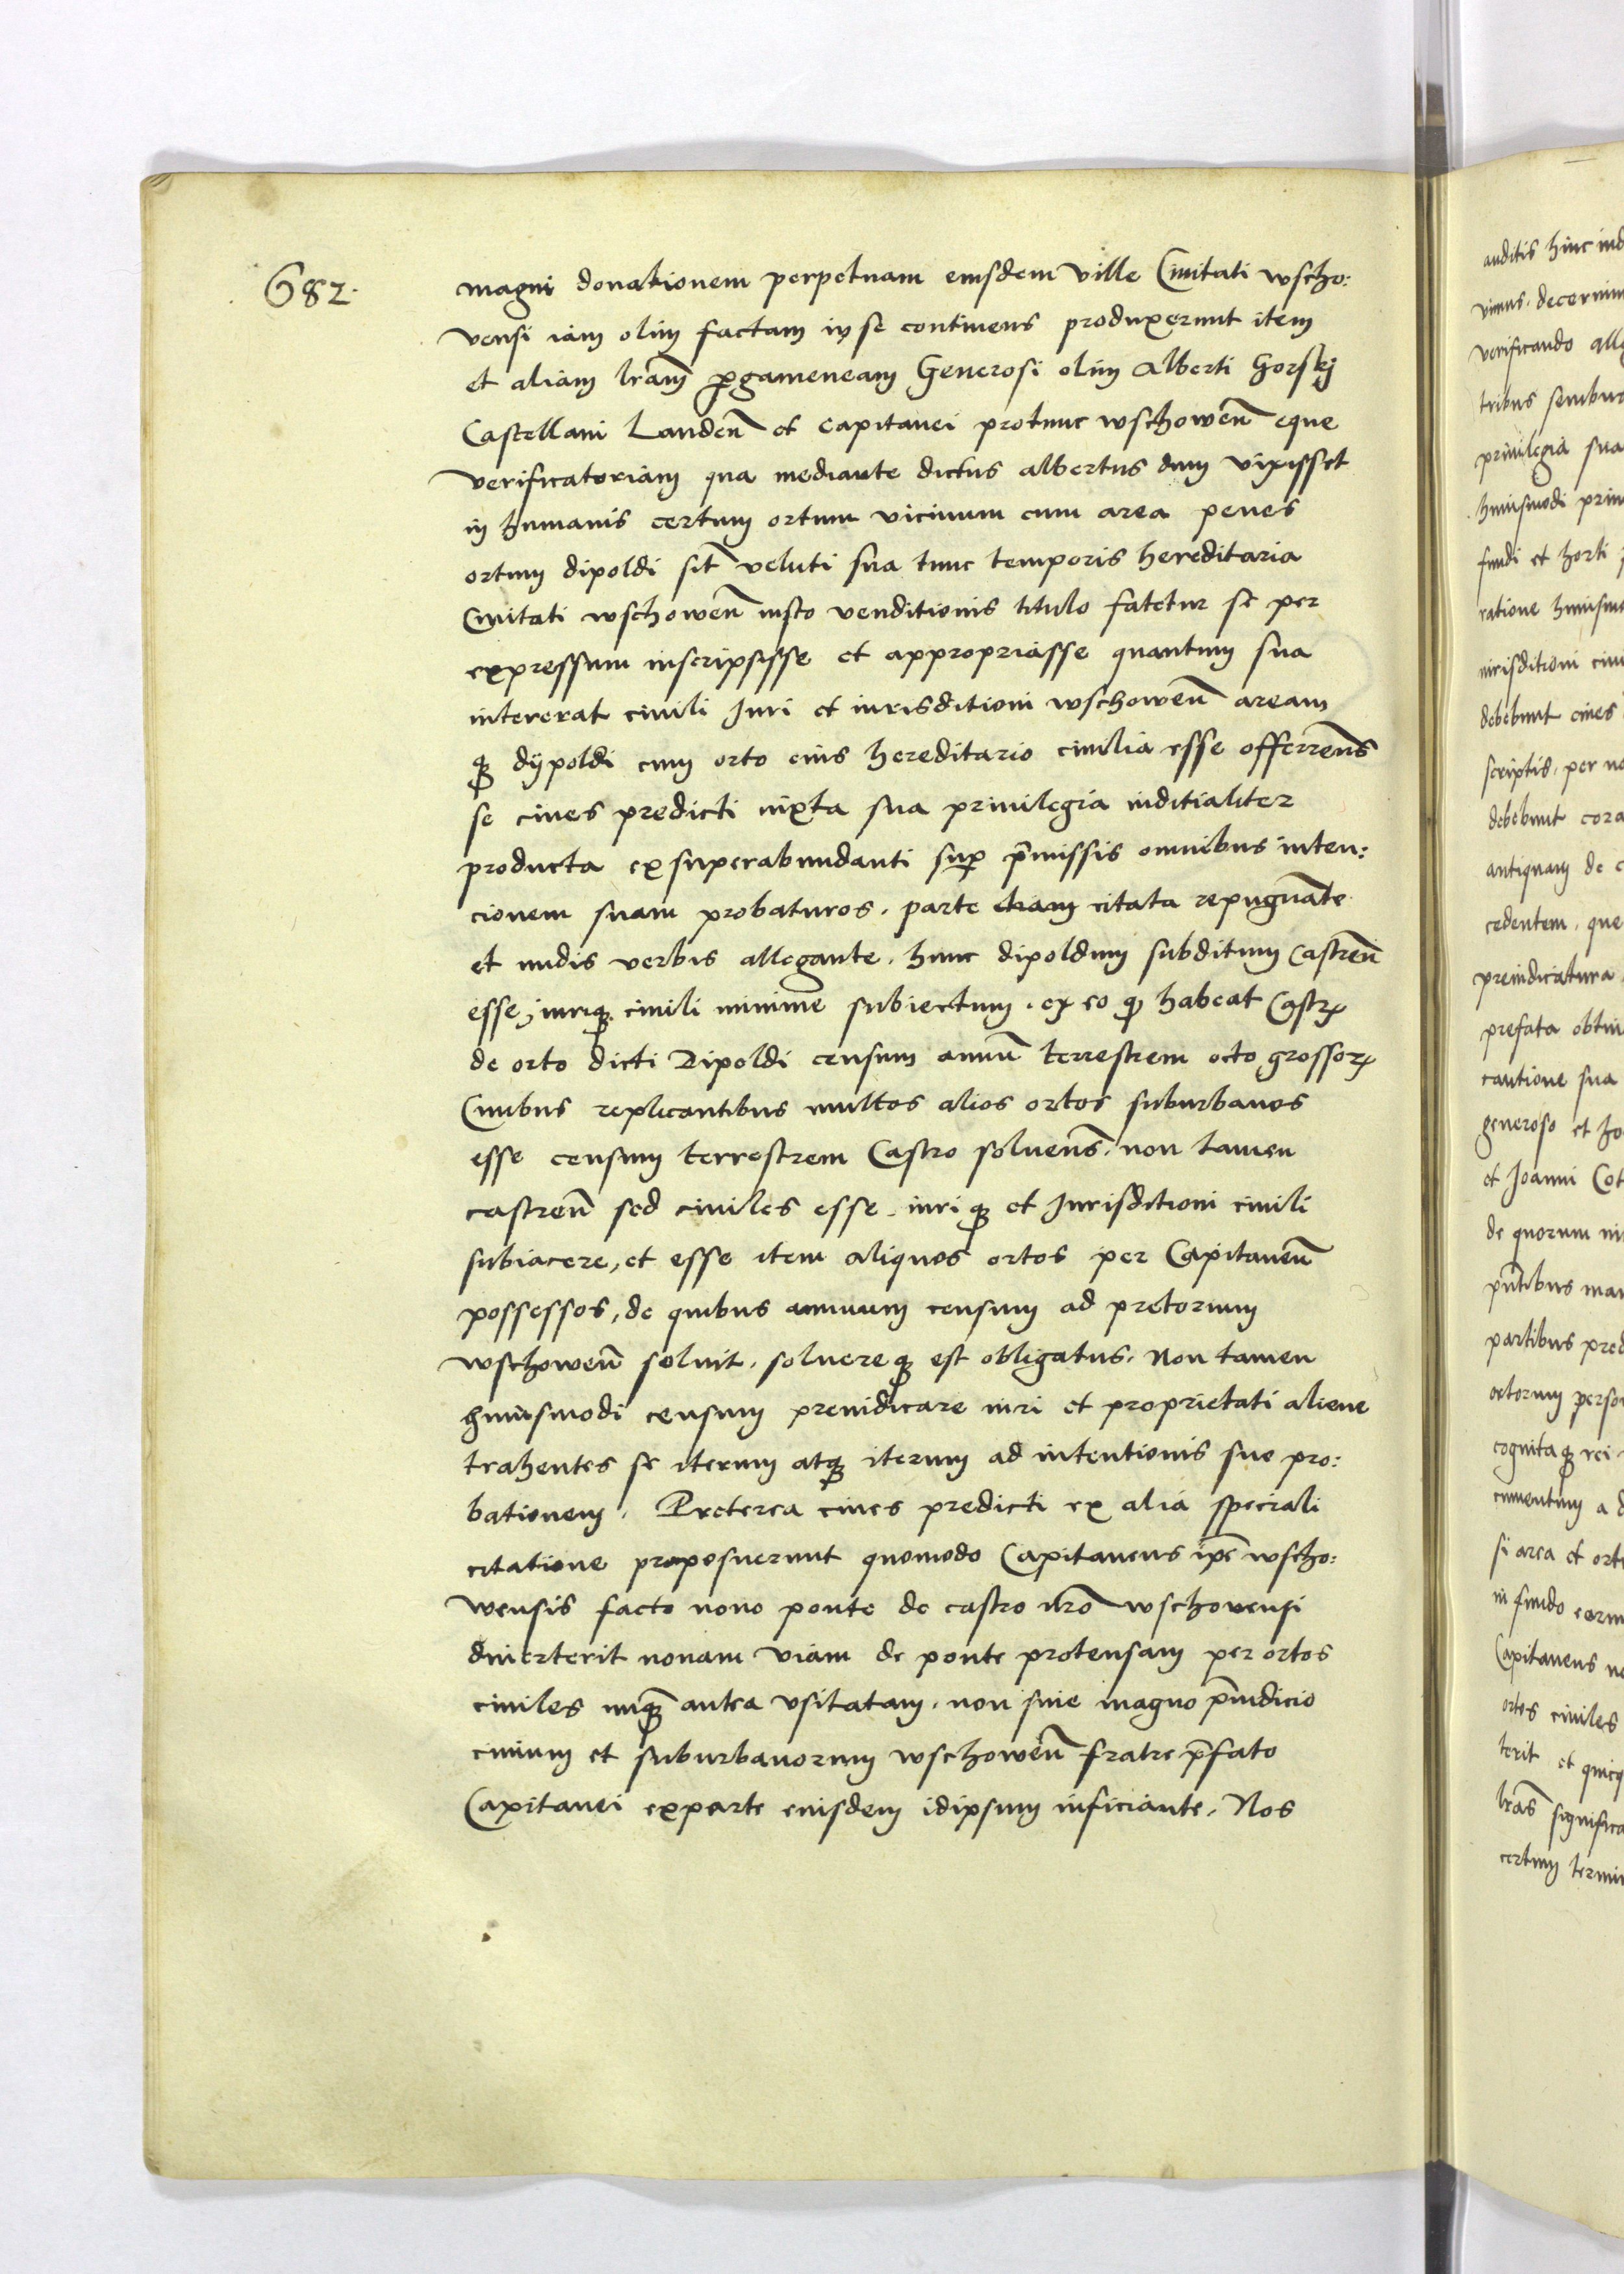 682.
magni donationem perpetuam eiusdem ville Ciuitati wscho:
vensi iam olim factam in se continens produxerunt item
et aliam lrãm ꝑgameneam Generosi olim Alberti Gorskj
Castellani Landeñ et Capitanei protunc wschoweñ eque
verificatoriam qua mediante dictus albertus dum vixisset
in humanis certum ortum vicinum cum area penes
ortum dipoldi sit̃ veluti sua tunc temporis hereditaria
Ciuitati wschoweñ iusto venditionis titulo fatetur se per
expressum inscripsisse et appropriasse quantum sua
intererat ciuili Juri et iurisditioni wschoweñ aream
qꝫ dijpoldi cum orto eius hereditario ciuilia esse offerrens̃
se ciues predicti iuxta sua priuilegia iuditialiter
producta ex superabundanti suꝑ p̃missis omnibus inten:
cionem suam probaturos. parte etiam citata repugnãte
et nudis verbis allegante. hunc dipoldum subditum Castreñ
esse, iuriqꝫ ciuili minime subiectum. ex eo qꝫ habeat Castrꝫ
de orto dicti Dipoldi censum annũ terrestrem octo grossorꝫ
Ciuibus replicantibus multos alios ortos suburbanos
esse censum terrestrem Castro soluens̃. non tamen
castreñ sed ciuiles esse. iuri qꝫ et Jurisditioni ciuili
subiacere, et esse item aliquos ortos per Capitaneũ
possessos, de quibus annuum censum ad pretorium
wschoweñ soluit. soluereqꝫ est obligatus. Non tamen
huiusmodi censum preiudicare iuri et proprietati aliene
trahentes se iterum atqꝫ iterum ad intentionis sue pro:
bationem. Preterea ciues predicti ex alia speciali
citatione proposuerunt quomodo Capitaneus ip̃e wscho:
wensis facto nouo ponte de castro nr̃o wschovensi
diuerterit nouam viam de ponte protensam per ortos
ciuiles nuqꝫ̃ antea vsitatam. non sine magno p̃iudicio
ciuium et suburbanorum wschoweñ fratre p̃fato
Capitanei exparte eiusdem idipsum inficiante. Nos
auditis hinc ind
vimus. decernim
verificando all
tribus
priuilegia sua
huiusmodi priu
fundi et horti
ratione huiusmo
iurisditioni ciu
debebunt ciues
scriptis. per no
debebunt cora
antiquam de c
cedentem. que
preiudicatura
prefata obtin
cautione sua
generoso et Jo
et Joanni Cot
de quorum
pñtibus man
partibus pred
actorum perso
cognitaqꝫ rei
cumentum a d
si area et orto
in fundo eorum
Capitaneus no
ortos ciuiles
terit et quicq
lr̃as significa
certum termin